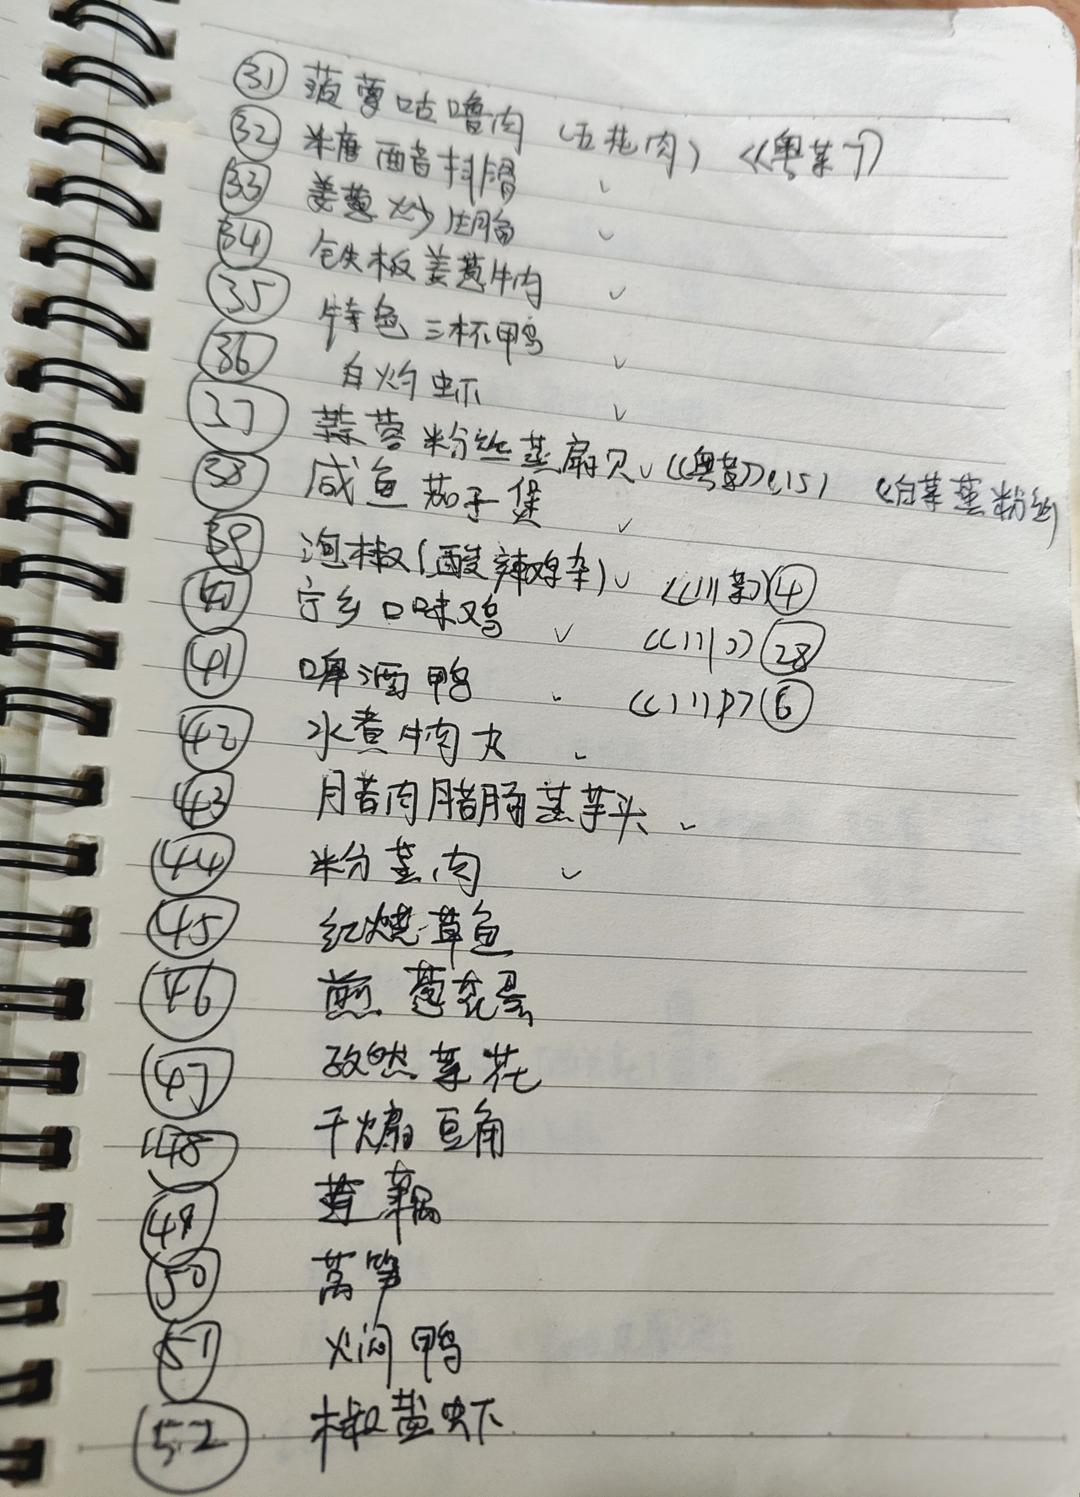 31 菠萝咕噜肉 （五花肉） 《粤菜7》
32 糖醋排骨 ✓
33 姜葱炒猪 ✓
34 铁板姜葱牛肉 ✓
35 特色三杯鸭 ✓
36 白灼虾 ✓
37 蒜蓉粉丝蒸扇贝 ✓ 《粤菜》 (15) 《白菜蒸粉丝
38 咸鱼茄子煲 ✓
39 泡椒(酸辣鸡杂) ✓ 《川菜》 4
40 宁乡口味鸡 ✓ 《川》 28
41 啤酒鸭 ✓ 《川》 6
42 水煮牛肉丸 ✓
43 腊肉腊肠蒸芋头 ✓
44 粉蒸肉 ✓
45 红烧草鱼
46 煎葱花蛋
47 孜然菜花
48 干煸豆角
49 莲藕
50 莴笋
51 焖鸭
52 椒盐虾